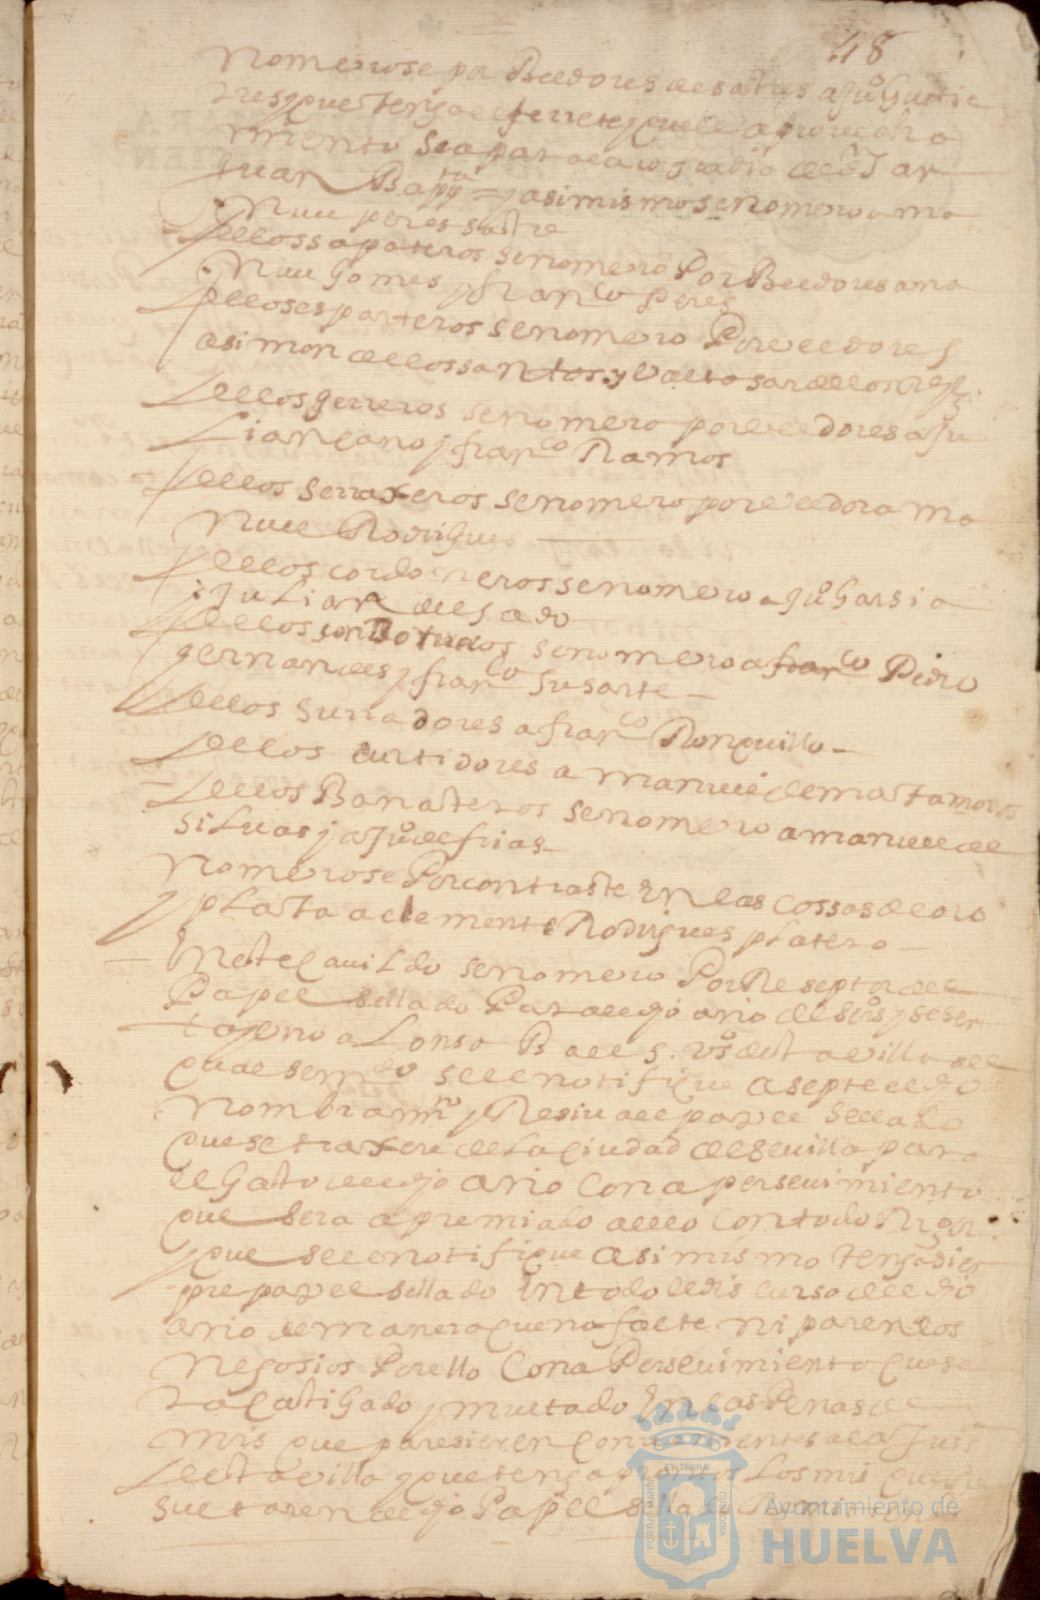 48
Nomerose por Beedores de sastres a Juº Gutie
rres que tenga el ferrete y que el aprovecha
miento sea para la cofradia de Sr San
Juan Bapta = y asimismo se nomero a ma
nuel peres sastre
de los sapateros se nomero Por Beedores a ma
nuel Gomes y franco Peres
de los esparteros se nomero Por veedores
a simon de los santos y Valtasar de los Reyes
de los gerreros se nomero por veedores a Ju
Liancano y franco Ramos
de los serraxeros se nomero por veedor a ma
nuel Rodrigues
de los cordoneros se nomero a Juº Garsia
y Julian delgado
de los se nomero a franco Pedro
gernandes y franco susarte
de los surradores a franco Ronquillo
de los curtidores a manuel de mastamoros
de los Banasteros se nomero a manuel de
siluas y a Juº de frias
Nomerose Por contraste En las cossas de oro
y plata a clemente Rodrigues platero
En este cauildo se nomero Por Reseptor del
Papel sellado Para el dho año de y seser
ta y uno a Lonso B vº de esta villa del
qual se mdo se le notifique asepte el dho
nombramto y Resiua el papel sellado
que se traxere de La ciudad de seuilla para
el Gasto del dho año Con apersevimiento
que sera apremiado a ello Con todo Rigor
y que se le notifique asimismo tenga siem
pre papel sellado En todo el discurso del dho
año de manera que no falte ni paren los
negosios Por ello Con aPersevimiento que se
ra castigado y multado En las Penas de
mis que paresieren Convenientes a la Justª
de esta villa y que tenga prontos Los mrs que
sue taren del dho Papel sellado
Ayuntamiento de
HUELVA